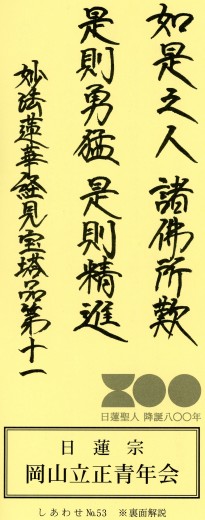 如是之人 諸佛所歎
是則勇猛 是則精進
妙法蓮華経見宝塔品第十一
日蓮聖人 降誕八〇〇年
日蓮宗
岡山立正青年会
しあわせ No.53 ※裏面解説